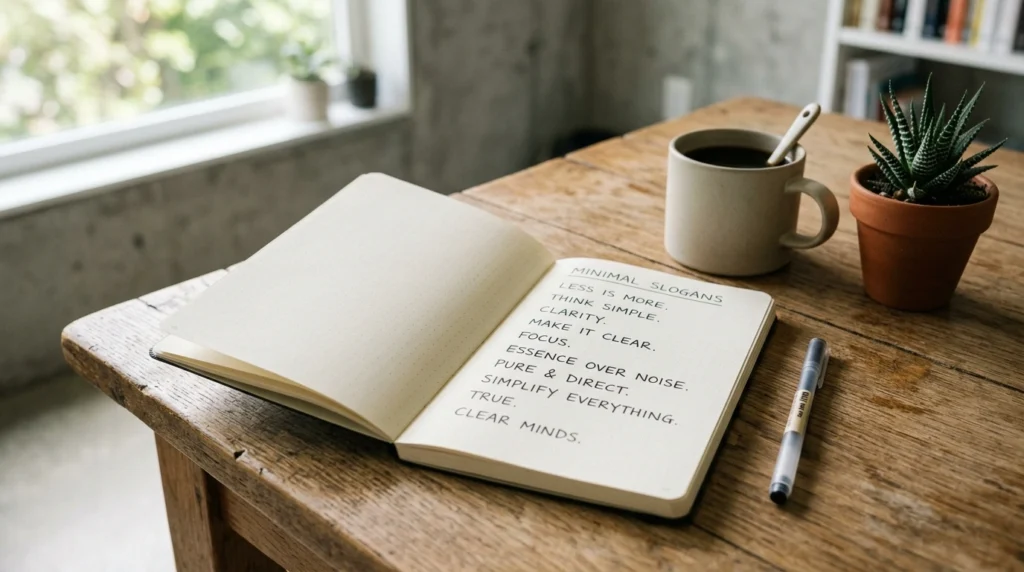 MINIMAL SLOGANS
LESS IS MORE.
THINK SIMPLE.
CLARITY.
MAKE IT CLEAR.
FOCUS.
ESSENCE OVER NOISE.
PURE & DIRECT.
SIMPLIFY EVERYTHING.
TRUE.
CLEAR MINDS.